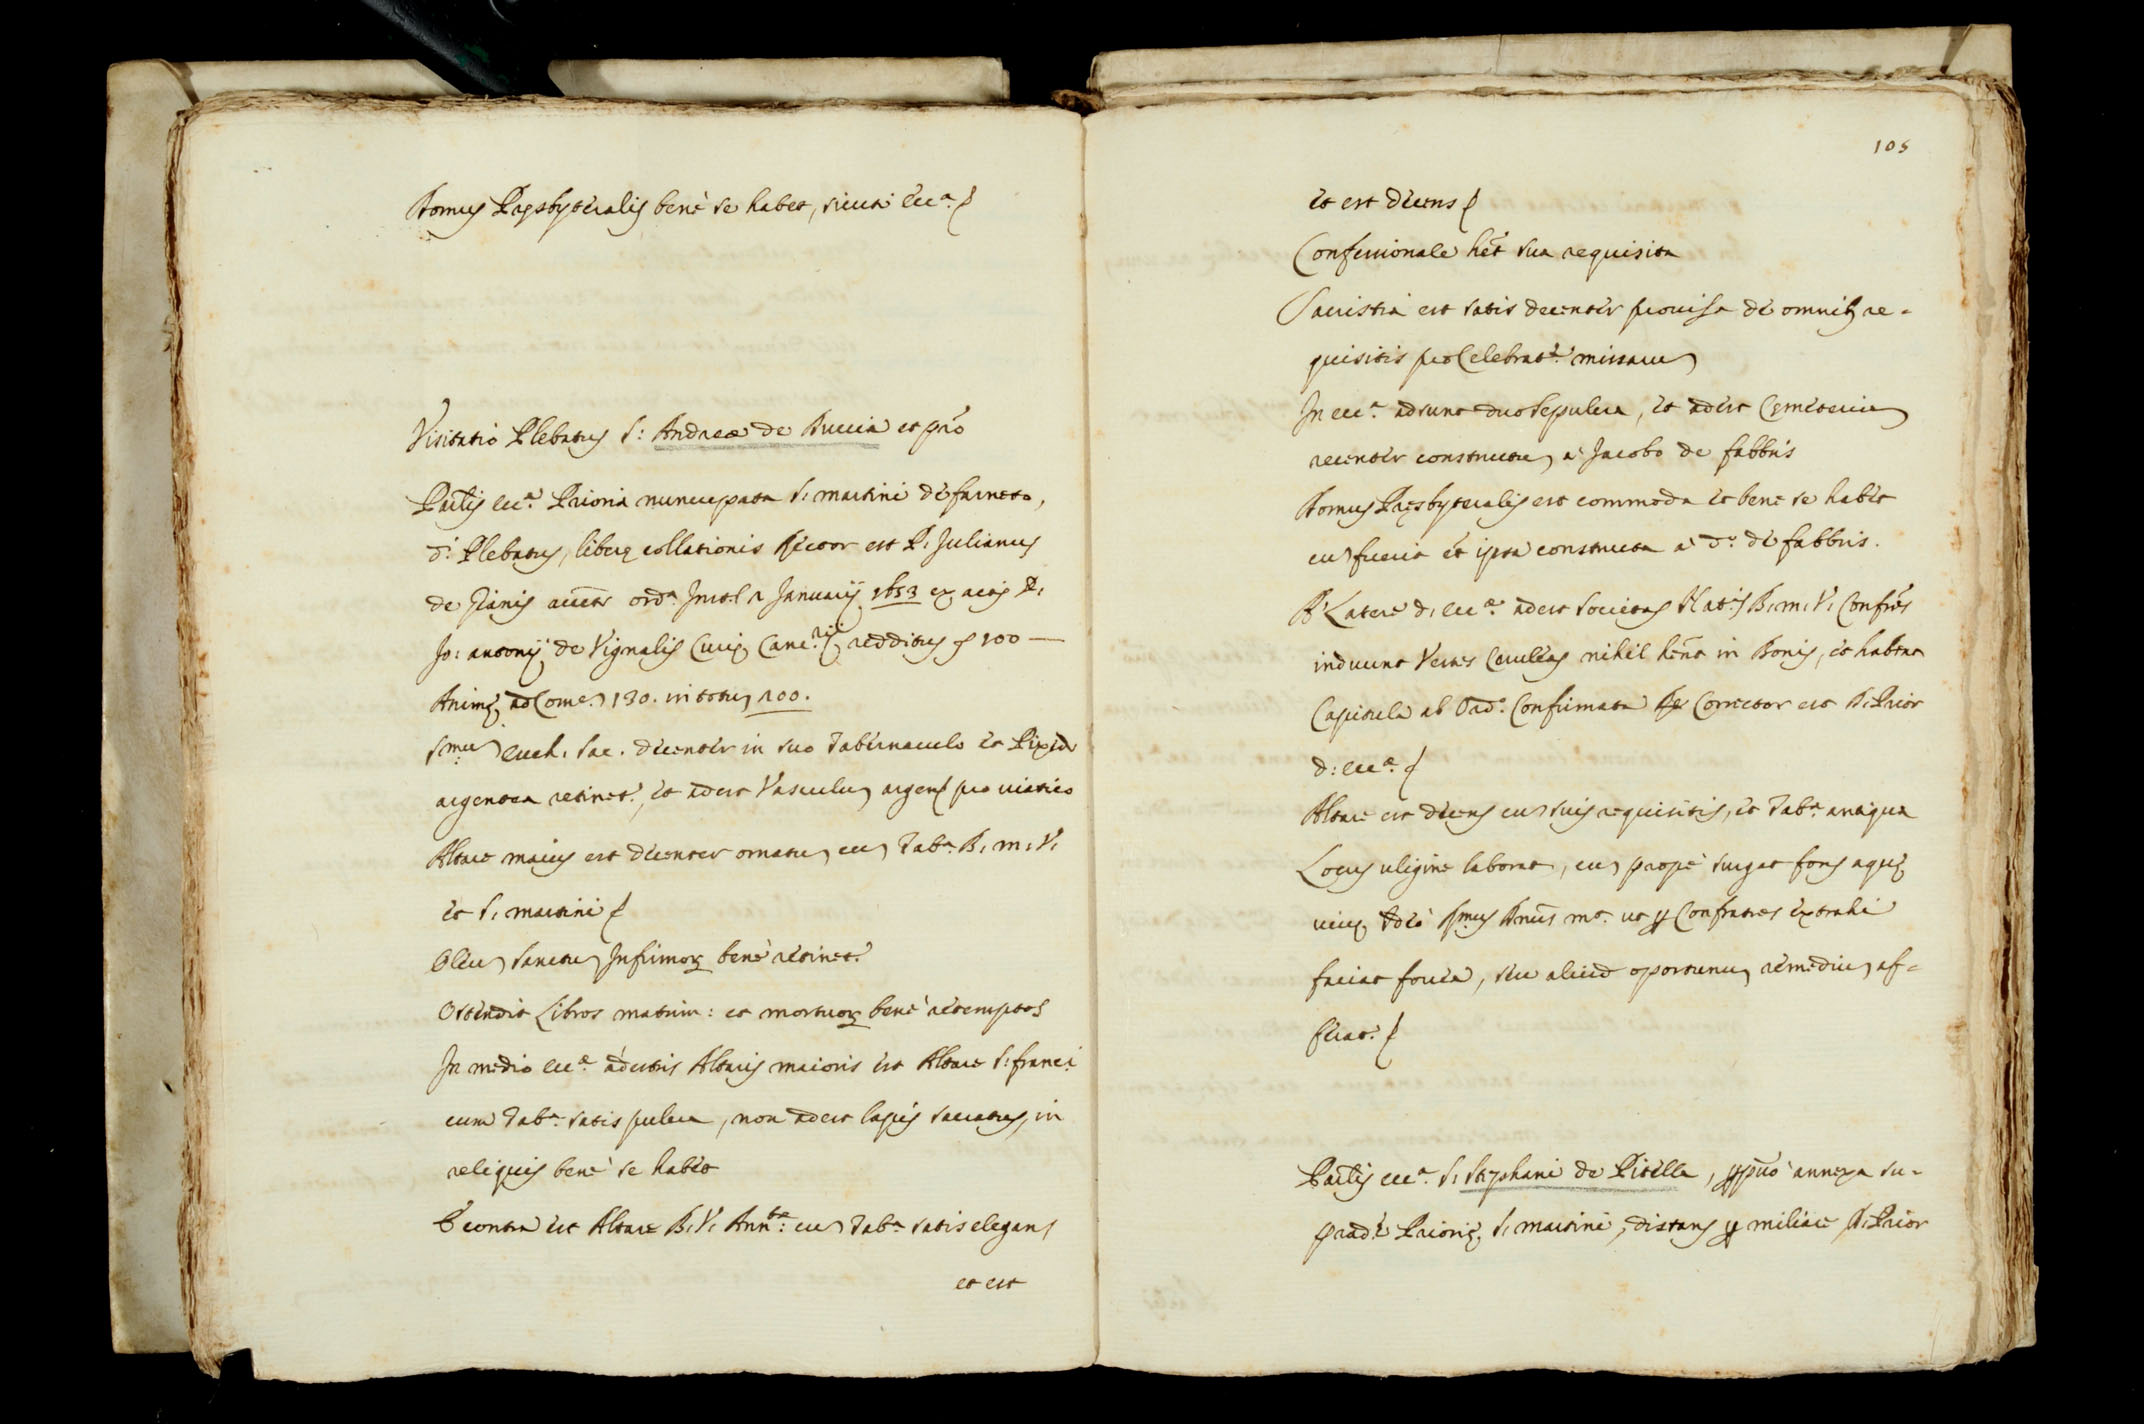 Domus Presbyteralis benè se habet, sicuti ecc.ᵃ
Visitatio Plebatus S: Andreæ de Buccia et prò
Parlis ecc.ᵃ Prioria nuncupata S. Martini de farneto,
d.ⁱ Plebatus, liberę collationis Rector est D. Julianus
de Zanis ord.ᵃ Januarij 1653 ex actis D.
Jo: Antonij de Vignalis Curię Canc.rij redditus 100 —
Animę ad Com. 130. in totum 200.
S.mum euch. Sac. decenter in suo Tabernaculo et Pixide
argentea retinet.ʳ, et adest Vasculum argent. pro viatico
Altare maius est decenter ornatum cum Tab.ᵃ B. m. V.
et S. Martini
Oleum Sanctum Infirmor. benè retinet.ʳ
Ostendit Libros matrim: et mortuor. benè retemptos
In medio ecc.ᵃ à dextris Altaris maioris est Altare S. franc.i
cum Tab.ᵃ satis pulcra, non adest lapis sacratus, in
reliquis benè se habet
E contra est Altare B. V. Ann.tæ: cum Tab.ᵃ satis elegans
et est
105
et est decens
Confessionale hēt sua requisita
Sacristia est satis decenter provisa de omnibus re-
quisitis pro Celebrat.ᵉ missarum
In ecc.ᵃ adsunt duo Sepulcra, et adest Cęmeterium
recenter constructum à Jacobo de fabbris
Domus Pręsbyteralis est commoda et bene se habet
cum fuerit et ipsa constructa à d.ᵒ de fabbris.
A Latere d. ecc.ᵃ adest Societas Nat.ⁱˢ B. m. V. Confrēs
induunt Vestes Cęruleas nihil hēnt in Bonis, et habent
Capitula ab Ord.ᵒ Confirmata Corrector est D. Prior
d: ecc.ᵃ
Altare est decens cum suis requisitis, et Tab.ᵃ antiqua
Locus uligine laborat, cum propè surgat fons aquę
vivę Ideò R.mus Dnūs m.ᵗ ut p Confratres extrahi
faciat fovea, seu aliud oportunum remedium af-
ferat.ʳ
Parlis ecc.ᵃ S. Stephani de Pitella, annexa su-
prad.ę Priorię S. Martini, distans p miliare D. Prior